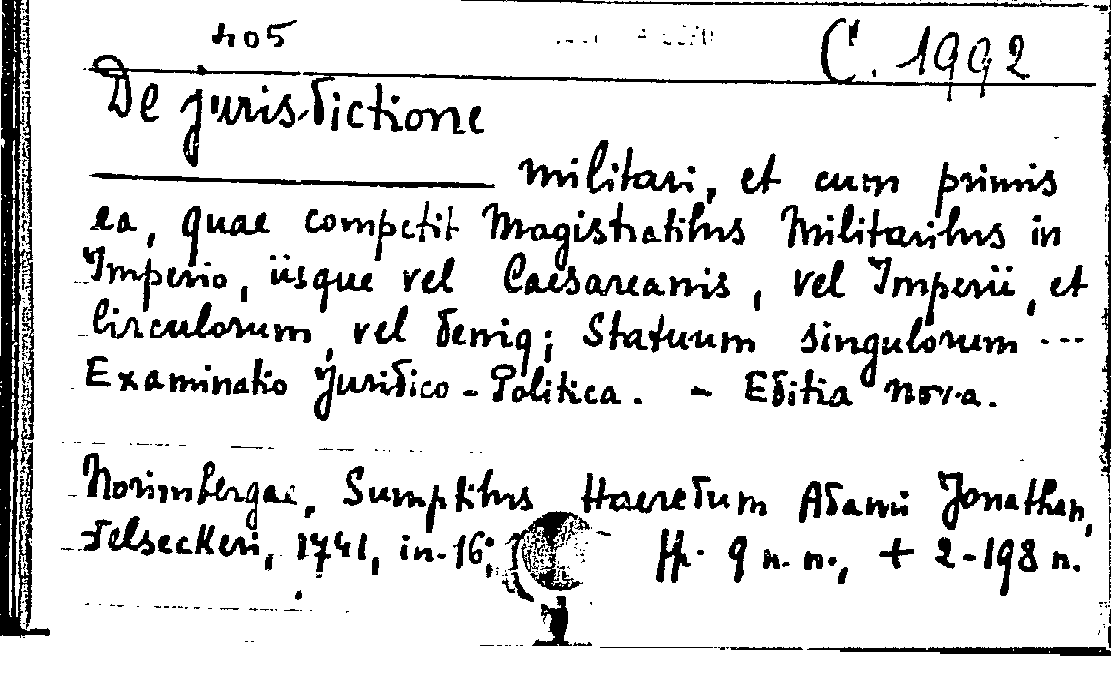 405
C. 1992
De jurisdictione
militari, et cum primis
ea, quae competit Magistratibus Militaribus in
Imperio, iisque vel Caesareanis, vel Imperii, et
Circulorum, vel deniq; Statuum singulorum ...
Examinatio Juridico-Politica. - Editia nova.
Norimbergae, Sumptibus Haeredum Adami Jonathan,
Felseckeri, 1741, in-16;
ff. 9 n. n., + 2-198 n.